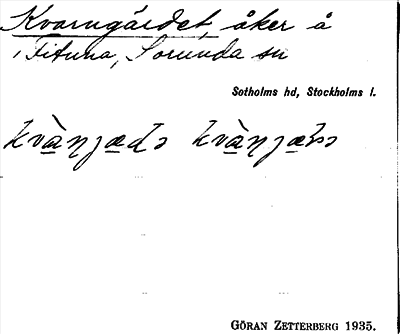 Kvarngärdet, åker å
Fituna, Sorunda sn
Sotholms hd, Stockholms l.
GÖRAN ZETTERBERG 1935.